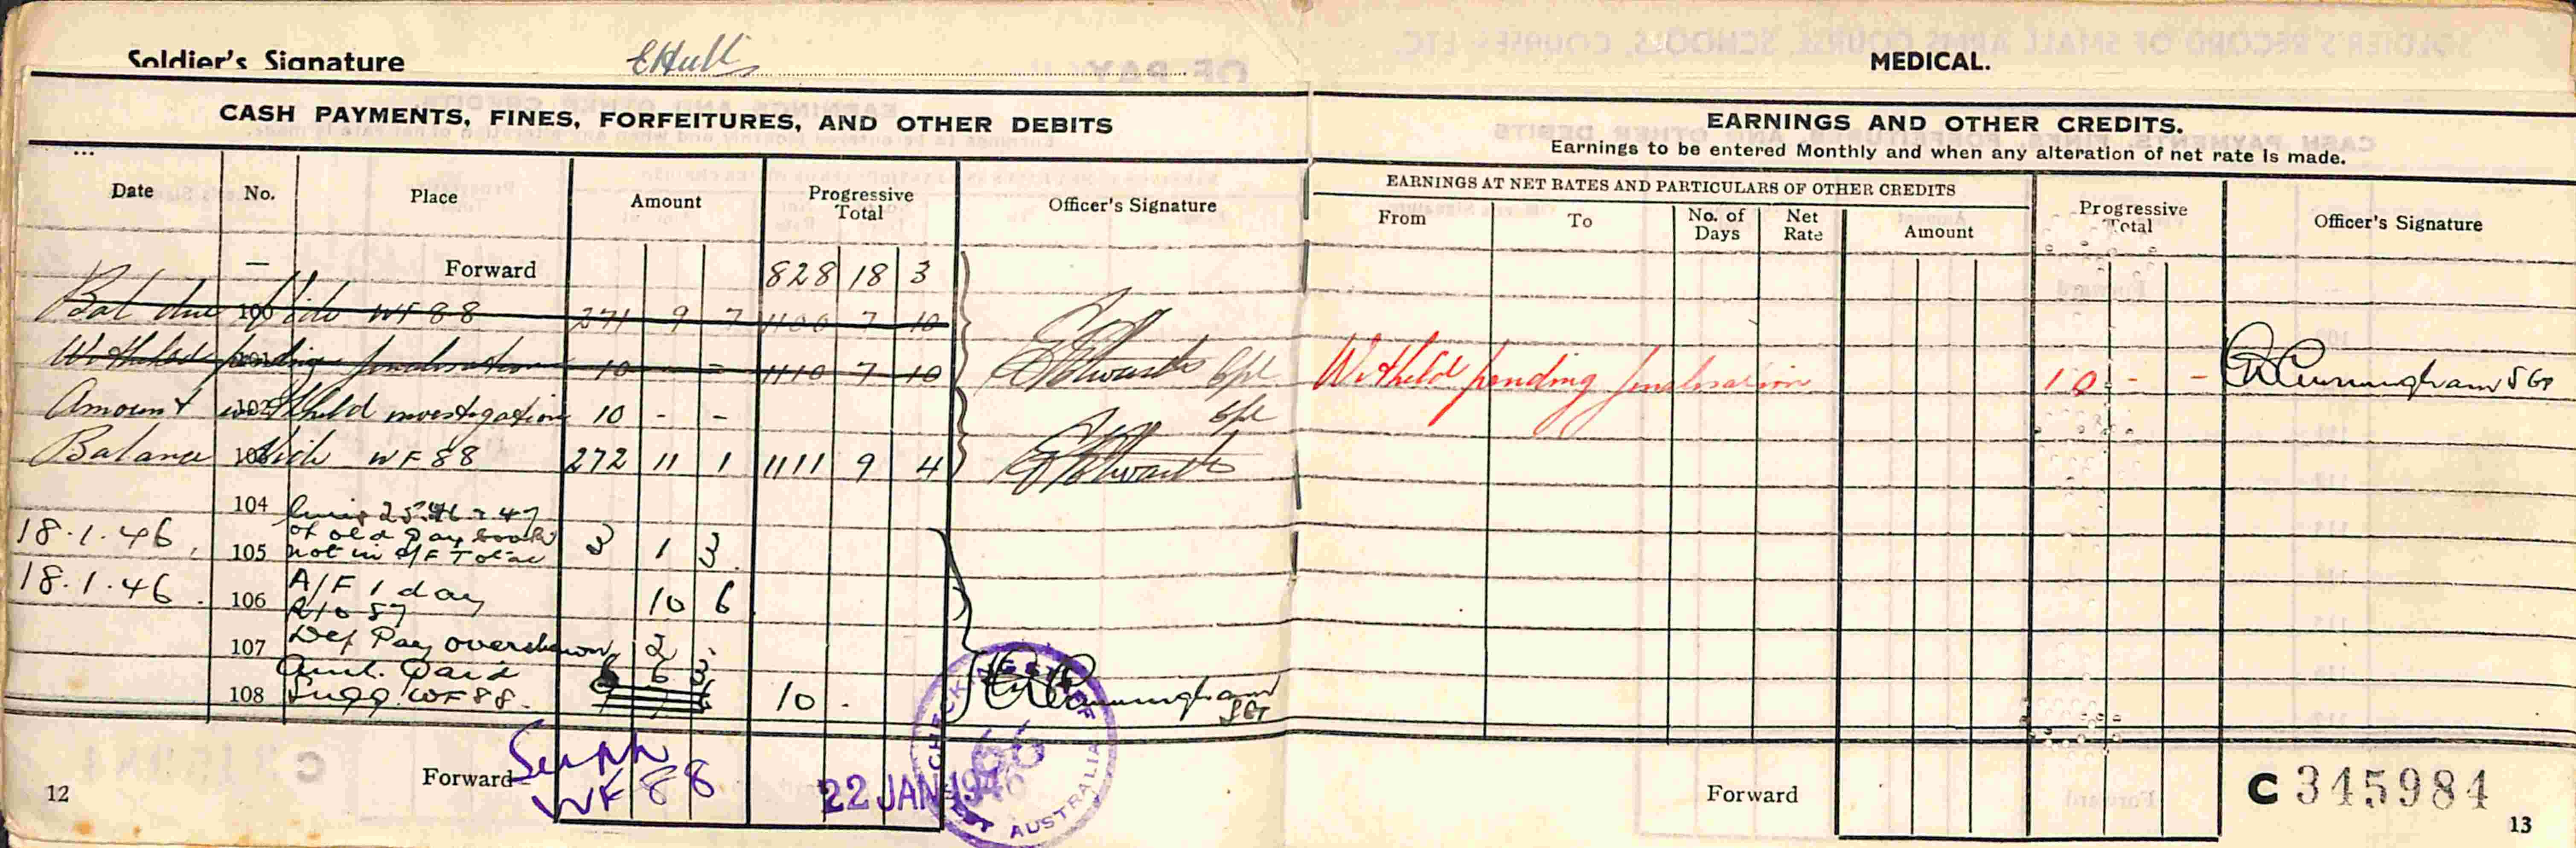 Soldier's Signature EHull
CASH PAYMENTS, FINES, FORFEITURES, AND OTHER DEBITS
Date No. Place Amount Progressive Total Officer's Signature
— Forward 828 18 3
Bal due 100 Vide WF 88 271 9 7 1100 7 10
Withheld pending finalisation 10 - - 1110 7 10 Cpl
Amount 102 withheld investigation 10 - - Cpl
Balance 103 Vide WF 88 272 11 1 1111 9 4
104
18.1.46 of old Pay book
105 not in C/F Total 3 1 3
18.1.46. A/F 1 day
106 R/O 57 10 6
107 Def Pay overshown 2
Amt. Paid 6 3
108 Supp. WF 88. 10 - Cunningham SGT
Forward Supp WF 88
22 JAN 1946
CHECKING
56
AUSTRALIA
12
MEDICAL.
EARNINGS AND OTHER CREDITS.
Earnings to be entered Monthly and when any alteration of net rate is made.
EARNINGS AT NET RATES AND PARTICULARS OF OTHER CREDITS
From To No. of Days Net Rate Amount Progressive Total Officer's Signature
Witheld pending finalisation 10 - - Cunningham SGT
Forward
C 345984
13